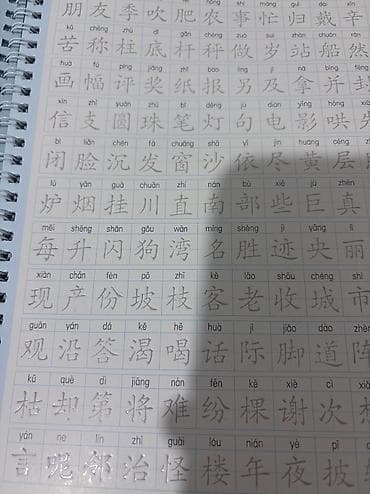 朋友季吹肥农事忙归戴辛
kǔ chēng zhù dǐ gǎn chèng zuò suì zhàn chuán rán
苦称柱底杆秤做岁站船然
huà fú píng jiǎng zhǐ bào lìng jí ná bìng fēng
画幅评奖纸报另及拿并封
xìn zhī yuán zhū bǐ dēng jù diàn yǐng hòng xiān
信支圆珠笔灯句电影哄先
bì liǎn chén fā chuāng shā yī jìn huáng céng
闭脸沉发窗沙依尽黄层
lú yān guà chuān zhí nán bù xiē jù zhēn
炉烟挂川直南部些巨真
měi shēng shǎn gǒu wān míng shèng jì yāng lì
每升闪狗湾名胜迹央丽
xiàn chǎn fèn pō zhī kè lǎo shōu chéng shì
现产份坡枝客老收城市
guān yán dá kě hē huà jì jiǎo dào
观沿答渴喝话际脚道阵
kū què dì jiāng nán fēn kē xiè cì
枯却第将难纷棵谢次想
yán ne lín zhì guài lóu nián yè pī
言呢邻治怪楼年夜披